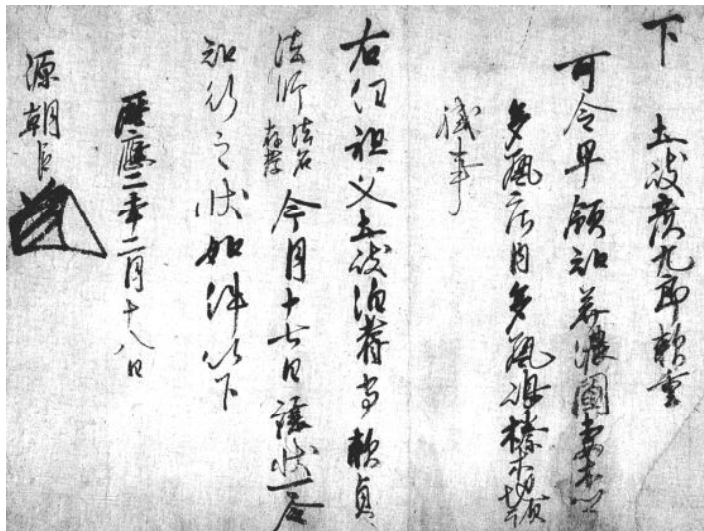 下　土岐彦九郎頼重
可令早領知美濃國妻木郷
多藝庄内多藝嶋榛木地頭
職事
右任祖父土岐伯耆守頼貞
法師法名存孝今月十七日譲状
知行之状如件以下
暦應二年二月十八日
源朝臣